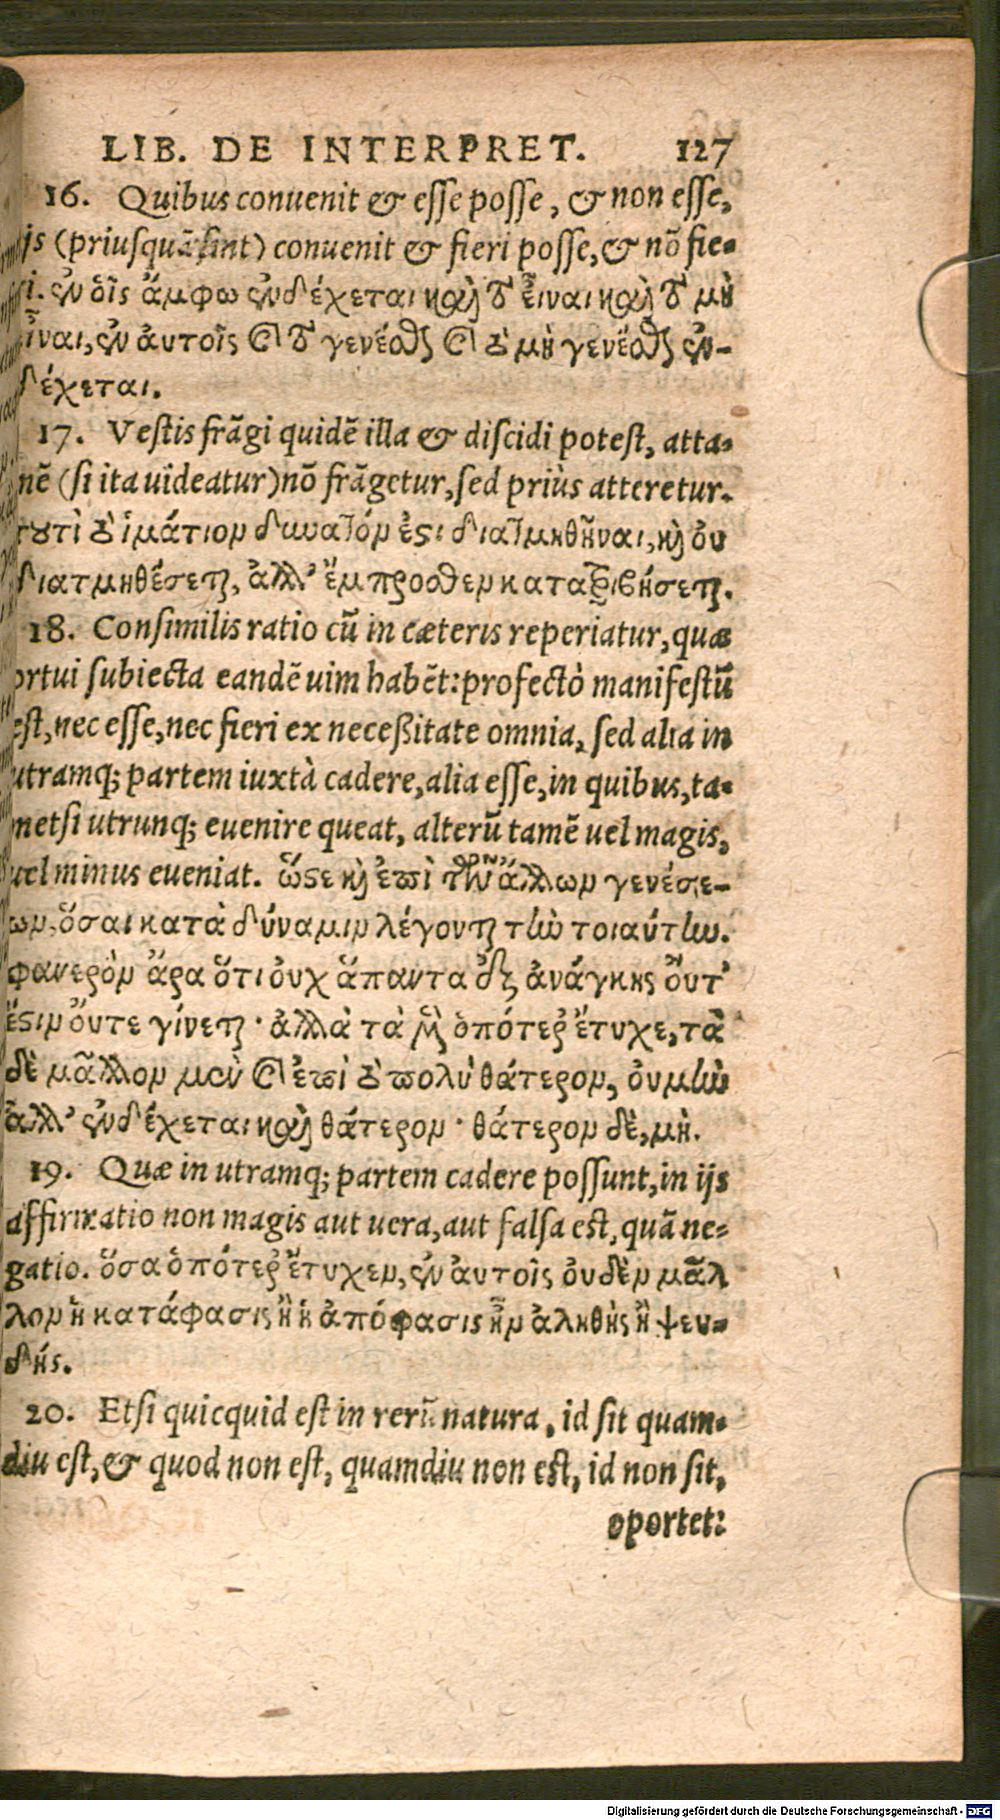 LIB. DE INTERPRET. 127
16. Quibus convenit & esse posse, & non esse,
ijs (priusquã sint) convenit & fieri posse, & nõ fie-
ri. ἐν οἷς ἄμφω ἐνδέχεται καὶ τὸ εἶναι καὶ τὸ μὴ
εἶναι, ἐν αὐτοῖς καὶ τὸ γενέσθαι καὶ τὸ μὴ γενέσθαι ἐν-
δέχεται.
17. Vestis frãgi quidẽ illa & discidi potest, atta-
mẽ (si ita uideatur) nõ frãgetur, sed priùs atteretur.
τουτὶ τὸ ἱμάτιον δυνατόν ἐστι διατμηθῆναι, καὶ οὐ
διατμηθέσεται, ἀλλ' ἔμπροσθεν κατατριβήσεται.
18. Consimilis ratio cũ in cæteris reperiatur, quæ
ortui subiecta eandẽ uim habẽt: profectò manifestũ
est, nec esse, nec fieri ex neceßitate omnia, sed alia in
utramq; partem iuxtà cadere, alia esse, in quibus, ta-
metsi utrunq; euenire queat, alterũ tamẽ uel magis,
uel minus eueniat. ὥστε καὶ ἐπὶ τῶν ἄλλων γενέσε-
ων, ὅσαι κατὰ δύναμιν λέγονται τὴν τοιαύτην.
φανερὸν ἄρα ὅτι οὐχ ἅπαντα ἐξ ἀνάγκης οὔτ'
ἔστιν οὔτε γίνεται· ἀλλὰ τὰ μὲν ὁπότερ' ἔτυχε, τὰ
δὲ μᾶλλον μὲν καὶ ἐπὶ τὸ πολὺ θάτερον, οὐ μὴν
ἀλλ' ἐνδέχεται καὶ θάτερον· θάτερον δὲ, μή.
19. Quæ in utramq; partem cadere possunt, in ijs
affirmatio non magis aut uera, aut falsa est, quã ne-
gatio. ὅσα ὁπότερ' ἔτυχεν, ἐν αὐτοῖς οὐδὲν μᾶλ
λον ἡ κατάφασις ἢ ἡ ἀπόφασις ἦν ἀληθὴς ἢ ψευ-
δής.
20. Etsi quicquid est in rerũ natura, id sit quam-
diu est, & quod non est, quamdiu non est, id non sit,
oportet:
Digitalisierung gefördert durch die Deutsche Forschungsgemeinschaft - DFG